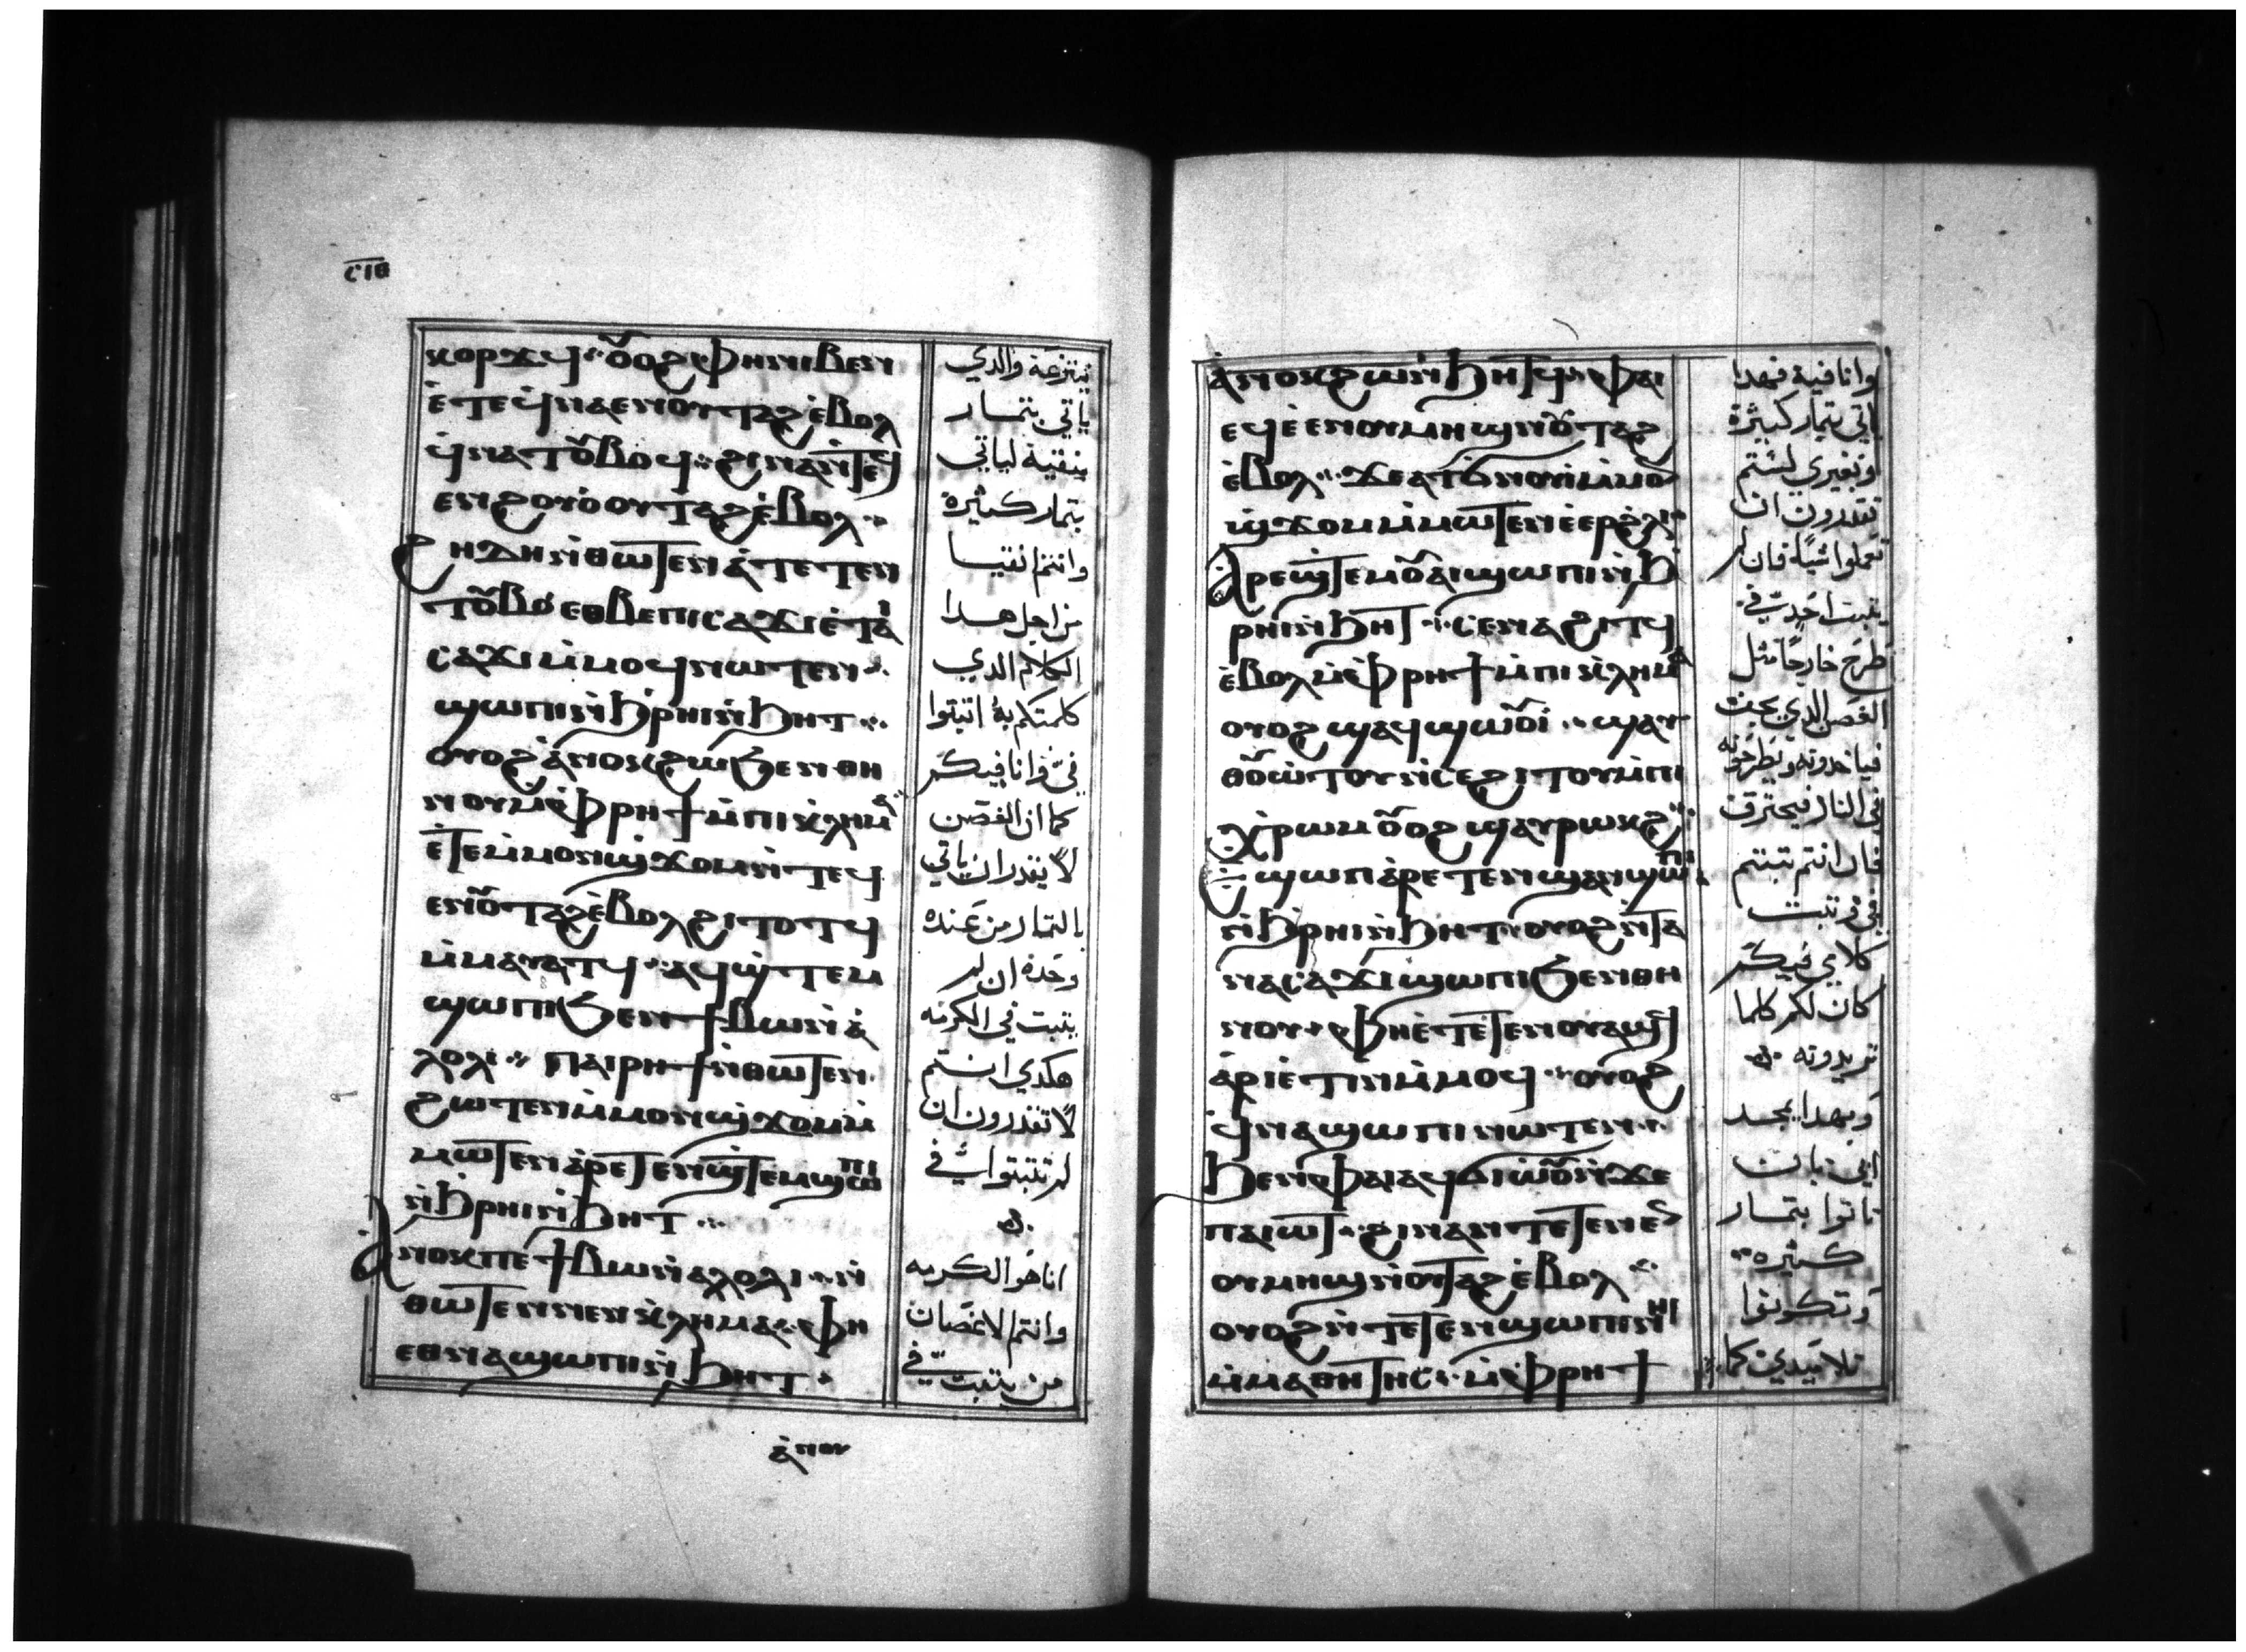 ⲥⲓⲑ
ⲕⲟⲣϫϥ ⲟⲩⲟϩ ⲫⲏ ⲛⲓⲃⲉⲛ
ⲉ̀ⲧⲉϥⲛⲁⲉⲛ ⲟⲩⲧⲁϩ ⲉ̀ⲃⲟⲗ
ϥ̀ⲛⲁⲧⲟⲩⲃⲟϥ ϩⲓⲛⲁ ⲛ̀ⲧⲉϥ
ⲉⲛ ϩⲟⲩⲟ̀ ⲟⲩⲧⲁϩ ⲉ̀ⲃⲟⲗ
ϩⲏⲇⲏ ⲛ̀ⲑⲱⲧⲉⲛ ⲁ̀ⲧⲉⲧⲉⲛ
ⲧⲟⲩⲃⲟ ⲉⲑⲃⲉ ⲡⲓⲥⲁϫⲓ ⲉ̀ⲧⲁⲓ
ⲥⲁϫⲓ ⲙ̀ⲙⲟϥ ⲛⲱⲧⲉⲛ
ϣⲱⲡⲓ ⲛ̀ϧⲣⲏⲓ ⲛ̀ϧⲏⲧ
ⲟⲩⲟϩ ⲁ̀ⲛⲟⲕ ϩⲱ ϧⲉⲛ ⲑⲏ
ⲛⲟⲩ ⲙ̀ⲫⲣⲏϯ ⲙ̀ⲡⲓⲕ̀ⲗⲏⲙⲁ
ⲉ̀ⲧⲉ ⲙ̀ⲙⲟⲛ ϣ̀ϫⲟⲙ ⲛ̀ⲧⲉϥ
ⲉⲛ ⲟⲩⲧⲁϩ ⲉ̀ⲃⲟⲗ ϩⲓⲧⲟⲧϥ
ⲙ̀ⲙⲁⲩⲁⲧϥ ⲁϥϣ̀ⲧⲉⲙ
ϣⲱⲡⲓ ϧⲉⲛ ϯⲃⲱ ⲛ̀ⲁ̀
ⲗⲟⲗⲓ ⲡⲁⲓⲣⲏϯ ⲛ̀ⲑⲱⲧⲉⲛ
ϩⲱⲧⲉⲛ ⲙ̀ⲙⲟⲛ ϣ̀ϫⲟⲙ ⲙ̀
ⲙⲱⲧⲉⲛ ⲁ̀ⲣⲉⲧⲉⲛϣ̀ⲧⲉⲙϣⲱⲡⲓ
ⲛ̀ϧⲣⲏⲓ ⲛ̀ϧⲏⲧ
ⲁ̀ⲛⲟⲕ ⲡⲉ ϯⲃⲱ ⲛ̀ⲁⲗⲟⲗⲓ ⲛ̀
ⲑⲱⲧⲉⲛ ⲛⲉⲛⲓⲕ̀ⲗⲏⲙⲁ ⲫⲏ
ⲉⲑⲛⲁϣⲱⲡⲓ ⲛ̀ϧⲏⲧ
ⲁ̀ⲛⲟⲩ
ينتزعه والدي
ياتي بتمار
ينقية لياتي
بتمار كثيرة
وانتم انقيا
من اجل هدا
الكلام الدي
كلمتكم به اتبتوا
في وانا فيكم
كما ان الغصن
لا يقدر ان ياتي
بالتمار من عنده
وحده ان لم
يتبت في الكرمه
هكدي انتم
لا تقدرون ان
لم تتبتوا في
انا هو الكرمه
وانتم الاغصان
من يتبت في
ⲁ̀ⲛⲟⲕ ϩⲱ ⲛ̀ϧⲏⲧϥ ⲫⲁⲓ
ⲉϥⲉ̀ⲉⲛ ⲟⲩⲙⲏϣ ⲛ̀ⲟⲩⲧⲁϩ
ⲉ̀ⲃⲟⲗ ϫⲉ ⲁⲧϭⲛⲟⲩⲓ ⲙ̀ⲙⲟⲛ
ϣ̀ϫⲟⲙ ⲙ̀ⲙⲱⲧⲉⲛ ⲉ̀ⲉⲣ ϩ̀ⲗⲓ
ⲁ̀ⲣⲉϣ̀ⲧⲉⲙ ⲟⲩⲁⲓ ϣⲱⲡⲓ ⲛ̀ϧ
ⲣⲏⲓ ⲛ̀ϧⲏⲧ ⲥⲉⲛⲁϩⲓⲧϥ
ⲉ̀ⲃⲟⲗ ⲙ̀ⲫⲣⲏϯ ⲙ̀ⲡⲓⲕ̀ⲗⲏⲙⲁ
ⲟⲩⲟϩ ϣⲁϥϣⲱⲟⲩⲓ̀ ϣⲁⲩ
ⲑⲟⲩⲱⲧⲟⲩ ⲛ̀ⲥⲉϩⲓⲧⲟⲩ ⲙ̀ⲡⲓ
ⲭ̀ⲣⲱⲙ ⲟⲩⲟϩ ϣⲁⲩⲣⲱⲕϩ
ⲉ̀ϣⲱⲡ ⲁ̀ⲣⲉⲧⲉⲛϣⲁⲛϣⲱⲡⲓ
ⲛ̀ϧⲣⲏⲓ ⲛ̀ϧⲏⲧ ⲟⲩⲟϩ ⲛ̀ⲧⲁ
ⲛⲁⲥⲁϫⲓ ϣⲱⲡⲓ ϧⲉⲛ ⲑⲏ
ⲛⲟⲩ ⲫⲏ ⲉ̀ⲧⲉⲧⲉⲛⲟⲩⲁϣϥ
ⲁ̀ⲣⲓⲉ̀ⲧⲓⲛ ⲙ̀ⲙⲟϥ ⲟⲩⲟϩ
ϥ̀ⲛⲁϣⲱⲡⲓ ⲛⲱⲧⲉⲛ
ϧⲉⲛ ⲫⲁⲓ ⲁϥϭⲓⲱ̀ⲟⲩ ⲛ̀ϫⲉ
ⲡⲁⲓⲱⲧ ϩⲓⲛⲁ ⲛ̀ⲧⲉⲧⲉⲛⲉⲛ
ⲟⲩⲙⲏϣ ⲛ̀ⲟⲩⲧⲁϩ ⲉ̀ⲃⲟⲗ
ⲟⲩⲟϩ ⲛ̀ⲧⲉⲧⲉⲛϣⲱⲡⲓ ⲛⲏⲓ
ⲙ̀ⲙⲁⲑⲏⲧⲏⲥ ⲙ̀ⲫⲣⲏϯ
وانا فية فهدا
ياتي بتمار كثيرة
وبغيري لستم
تقدرون ان
تعملوا شيا فان لم
يتبت احد في
طرح خارجا متل
الغصن الدي يجف
فياخدونه ويطرحونه
في النار فيحترق
فان انتم تبتم
في وتبت
كلامي فيكم
كان لكم كلما
تريدونه
وبهدا يمجد
ابي بان
تاتوا بتمار
كثيره
وتكونوا
تلاميدي كما